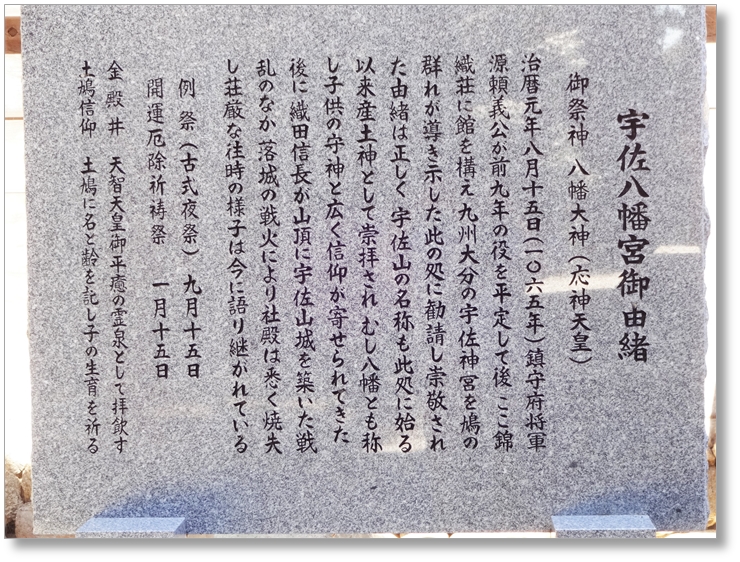 宇佐八幡宮御由緒
御祭神 八幡大神（応神天皇）
治暦元年八月十五日（一〇六五年）鎮守府将軍
源頼義公が前九年の役を平定して後 ここ錦
織荘に館を構え 九州大分の宇佐神宮を鳩の
群れが導き示した此の処に勧請し崇敬され
た由緒は正しく 宇佐山の名称も此処に始る
以来産土神として崇拝され むし八幡とも称
し子供の守神と広く信仰が寄せられてきた
後に織田信長が山頂に宇佐山城を築いた戦
乱のなか 落城の戦火により社殿は悉く焼失
し荘厳な往時の様子は今に語り継がれている
例祭（古式夜祭） 九月十五日
開運厄除祈祷祭 一月十五日
金殿井 天智天皇御平癒の霊泉として拝飲す
土鳩信仰 土鳩に名と齢を託し子の生育を祈る